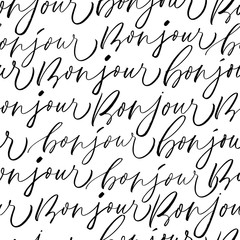 onjour Bonjour bonjour
Bonjour bonjour
onjour Bonjour bon
ur bonjour bonjour
r bonjour Bonjour
Bonjour Bonjour